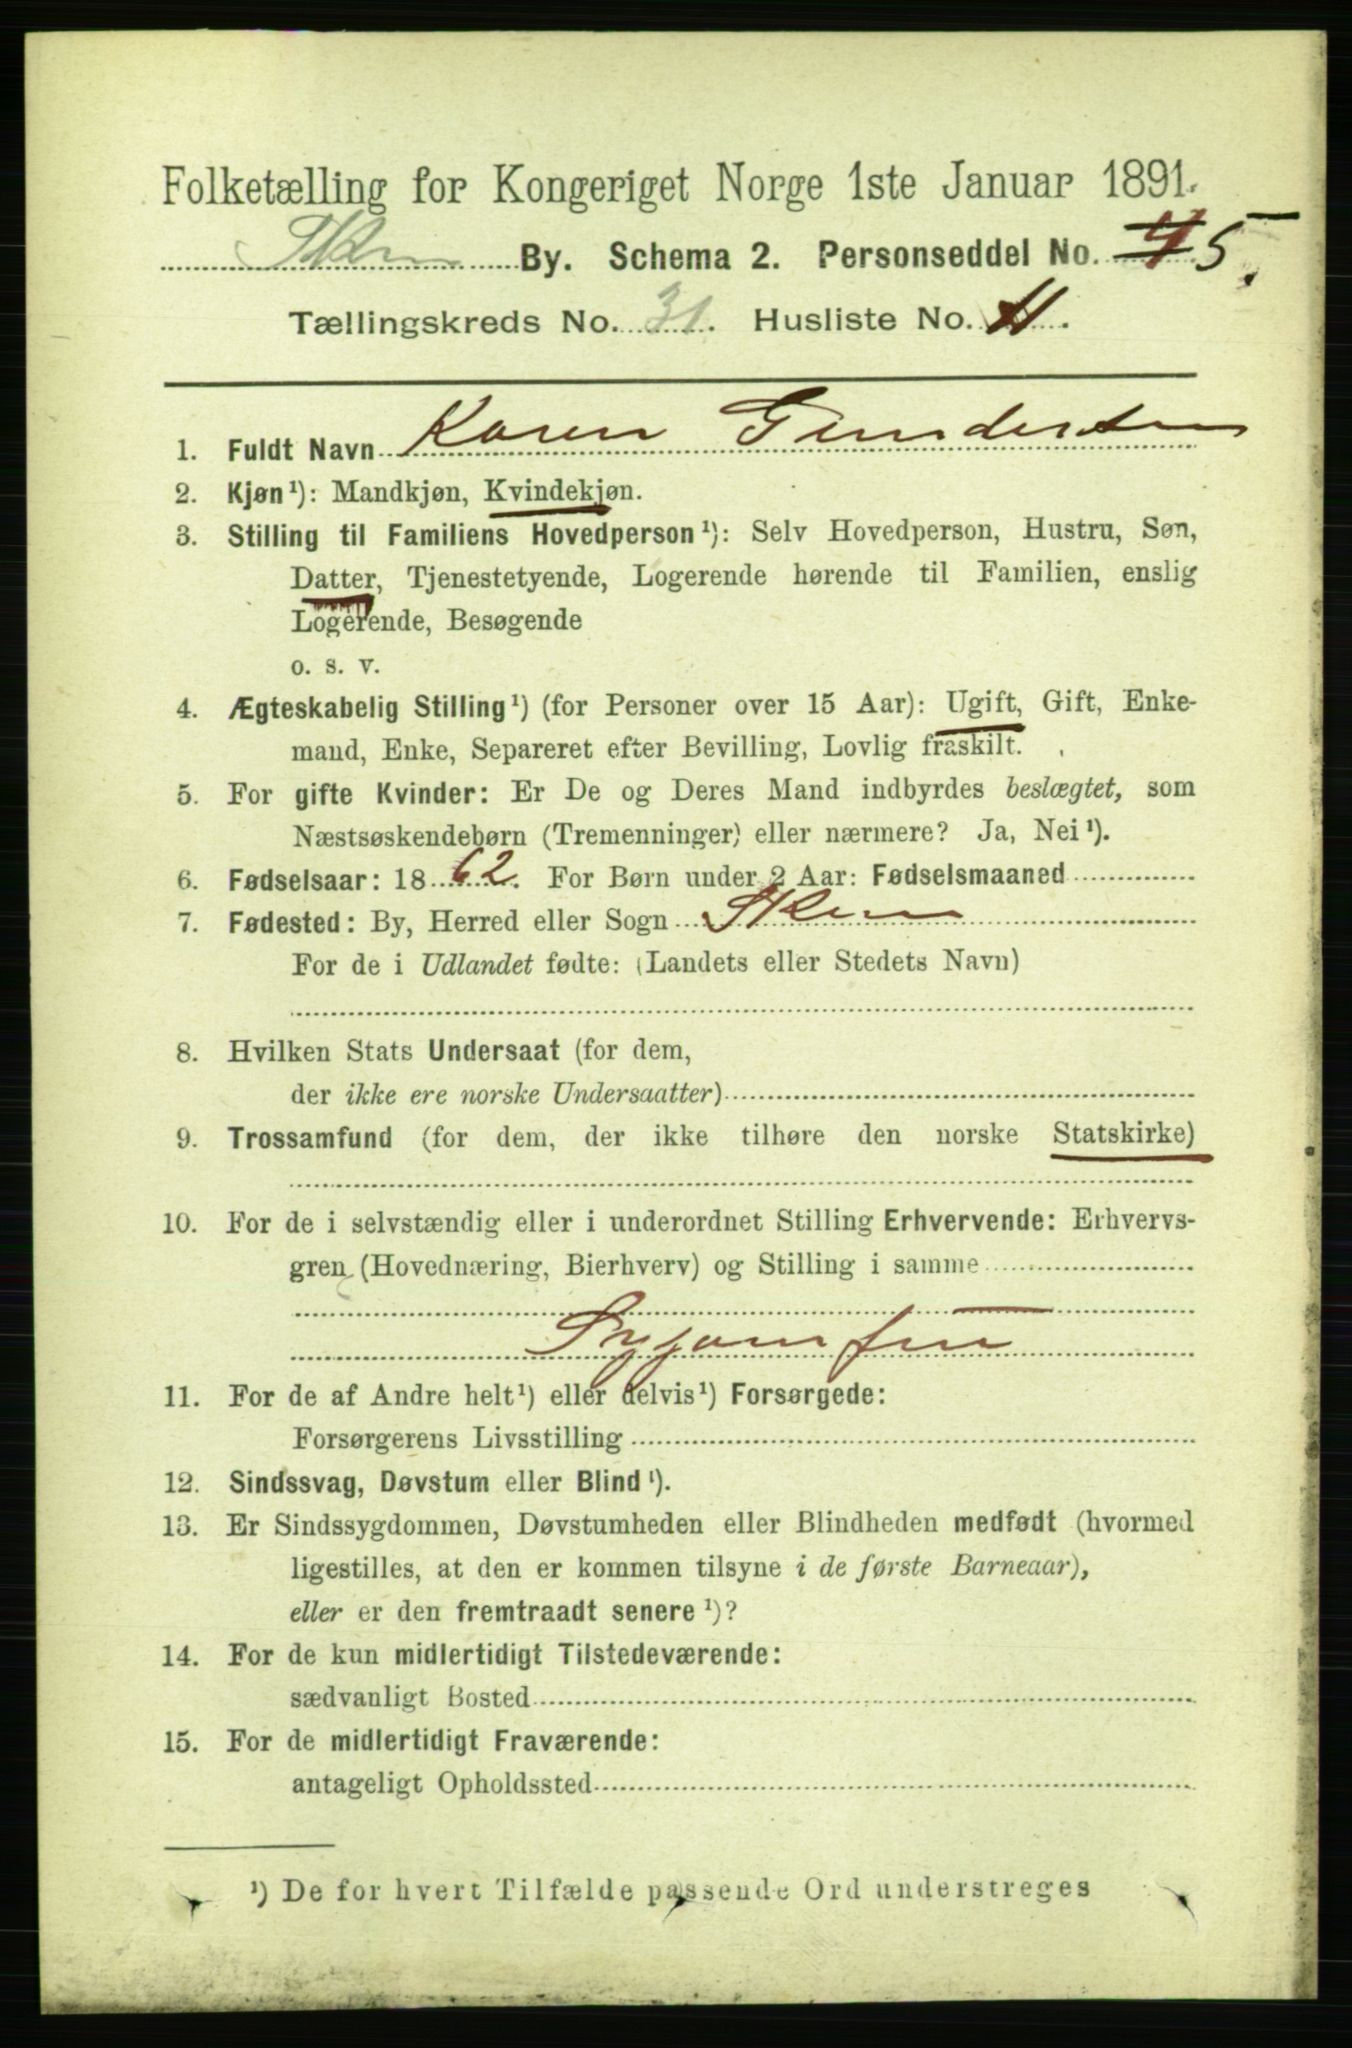 Folketælling for Kongeriget Norge 1ste Januar 1891.
Skien By. Schema 2. Personseddel No. 4 5.
Tællingskreds No. 31. Husliste No. 11.
1. Fuldt Navn Karen Gundersen
2. Kjøn¹): Mandkjøn, Kvindekjøn.
3. Stilling til Familiens Hovedperson¹): Selv Hovedperson, Hustru, Søn,
Datter, Tjenestetyende, Logerende hørende til Familien, enslig
Logerende, Besøgende
o. s. v.
4. Ægteskabelig Stilling¹) (for Personer over 15 Aar): Ugift, Gift, Enke-
mand, Enke, Separeret efter Bevilling, Lovlig fraskilt.
5. For gifte Kvinder: Er De og Deres Mand indbyrdes beslægtet, som
Næstsøskendebørn (Tremenninger) eller nærmere? Ja, Nei¹).
6. Fødselsaar: 1862. For Børn under 2 Aar: Fødselsmaaned
7. Fødested: By, Herred eller Sogn Skien
For de i Udlandet fødte: (Landets eller Stedets Navn)
8. Hvilken Stats Undersaat (for dem,
der ikke ere norske Undersaatter)
9. Trossamfund (for dem, der ikke tilhøre den norske Statskirke)
10. For de i selvstændig eller i underordnet Stilling Erhvervende: Erhvervs-
gren (Hovednæring, Bierhverv) og Stilling i samme
Syjomfru
11. For de af Andre helt¹) eller delvis¹) Forsørgede:
Forsørgerens Livsstilling
12. Sindssvag, Døvstum eller Blind¹).
13. Er Sindssygdommen, Døvstumheden eller Blindheden medfødt (hvormed
ligestilles, at den er kommen tilsyne i de første Barneaar),
eller er den fremtraadt senere¹)?
14. For de kun midlertidigt Tilstedeværende:
sædvanligt Bosted
15. For de midlertidigt Fraværende:
antageligt Opholdssted
¹) De for hvert Tilfælde passende Ord understreges